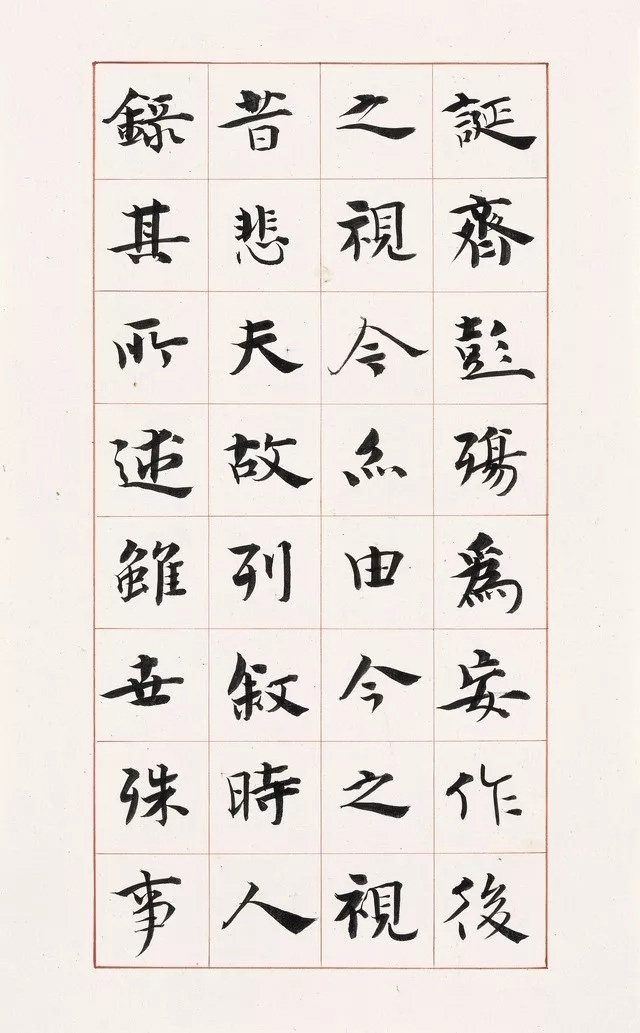 誕齊彭殤爲妄作後
之視今亦由今之視
昔悲夫故列敘時人
錄其所述雖世殊事